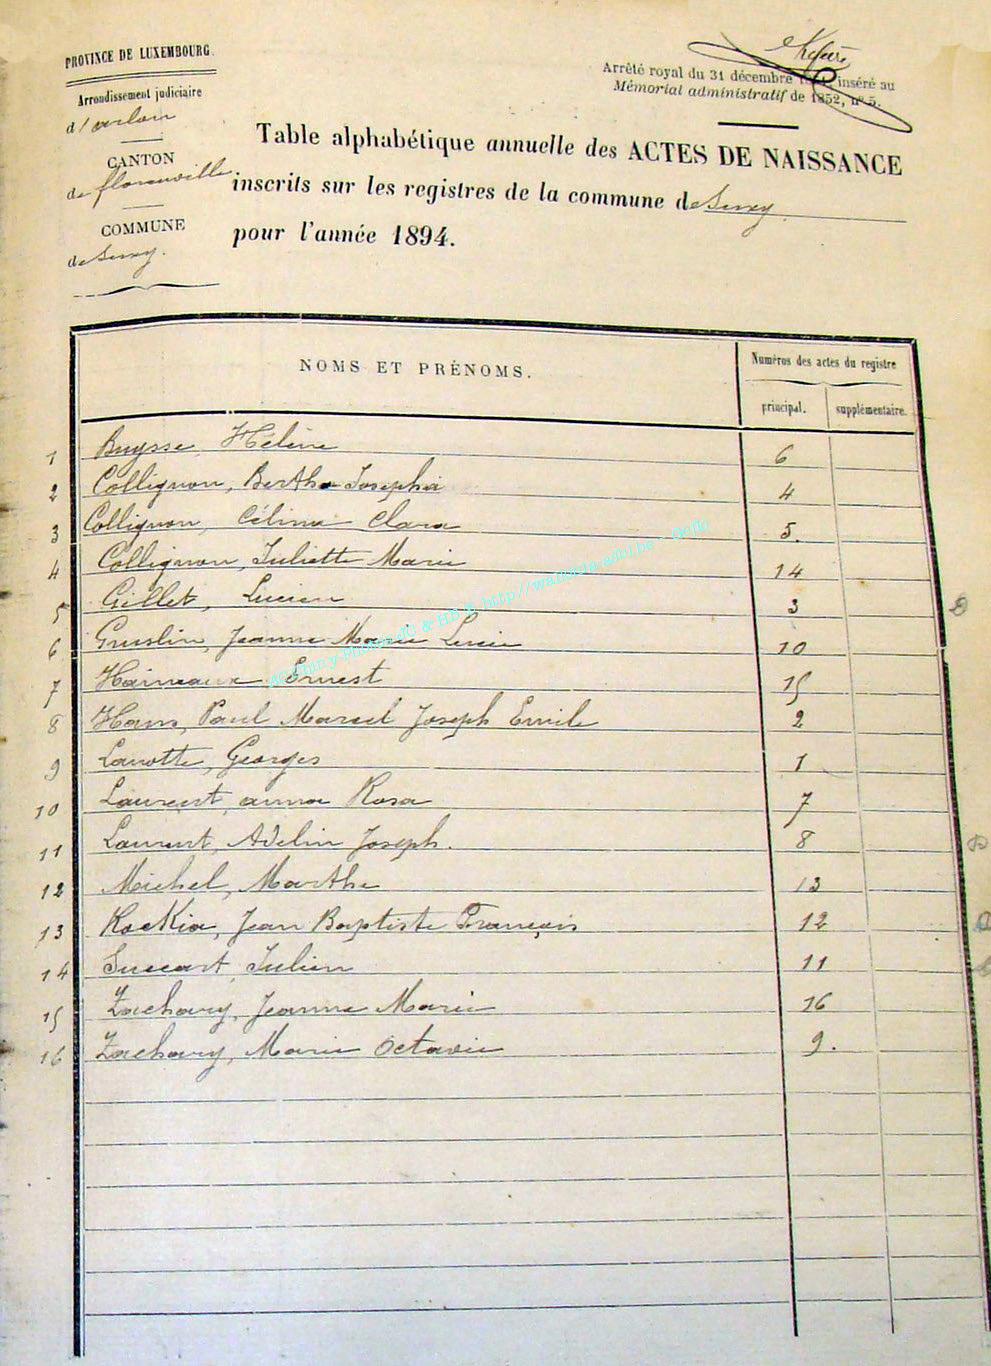 PROVINCE DE LUXEMBOURG.
Arrondissement judiciaire
d'arlon
CANTON
de florenville
COMMUNE
de
Arrêté royal du 31 décembre inséré au
Mémorial administratif de 1852, nº 5.
Table alphabétique annuelle des ACTES DE NAISSANCE
inscrits sur les registres de la commune de
pour l'année 1894.
NOMS ET PRÉNOMS.
Numéros des actes du registre
principal. supplémentaire.
1 Buysse, Hélène 6
2 Collignon, Bertha Josepha 4
3 Collignon, Célina Clara 5.
4 Collignon, Juliette Marie 14
5 Gillet, Lucien 3 D
6 Gruslin, Jeanne Marie Lucie 10
7 Haineaux Ernest 15
8 Hans, Paul Marcel Joseph Emile 2
9 Lanotte, Georges 1
10 Laurent, anna Rosa 7
11 Laurent, Adelin Joseph. 8 D
12 Michel, Marthe 13
13 Jean Baptiste François 12 D
14 Julien 11
15 Zachary, Jeanne Marie 16
16 Zachary, Marie Octavie 9.